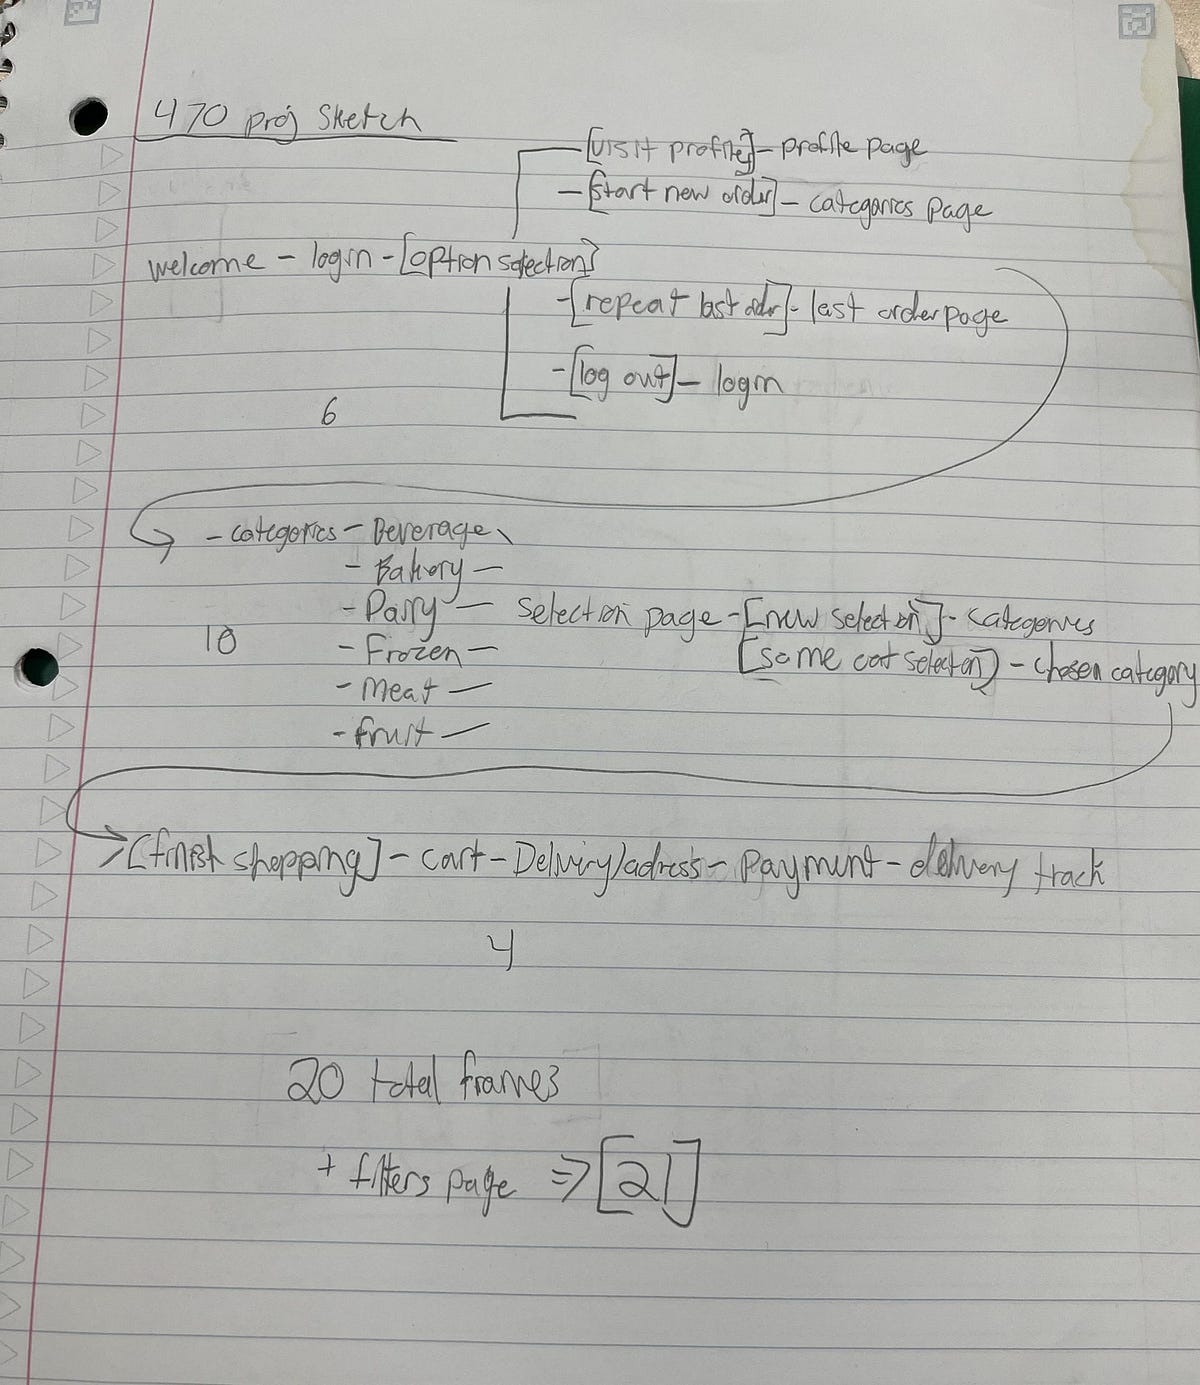 470 proj sketch
[visit profile] - profile page
- [start new order] - categories page
welcome - login - [option selection]
- [repeat last order] - last order page
- [log out] - login
6
- categories - Beverage
- Bakery -
- Dairy - selection page - [new selection] - categories
10
- Frozen - [same cat selection] - chosen category
- meat -
- fruit -
[finish shopping] - cart - Delivery/adress - payment - delivery track
4
20 total frames
+ filters page => [21]